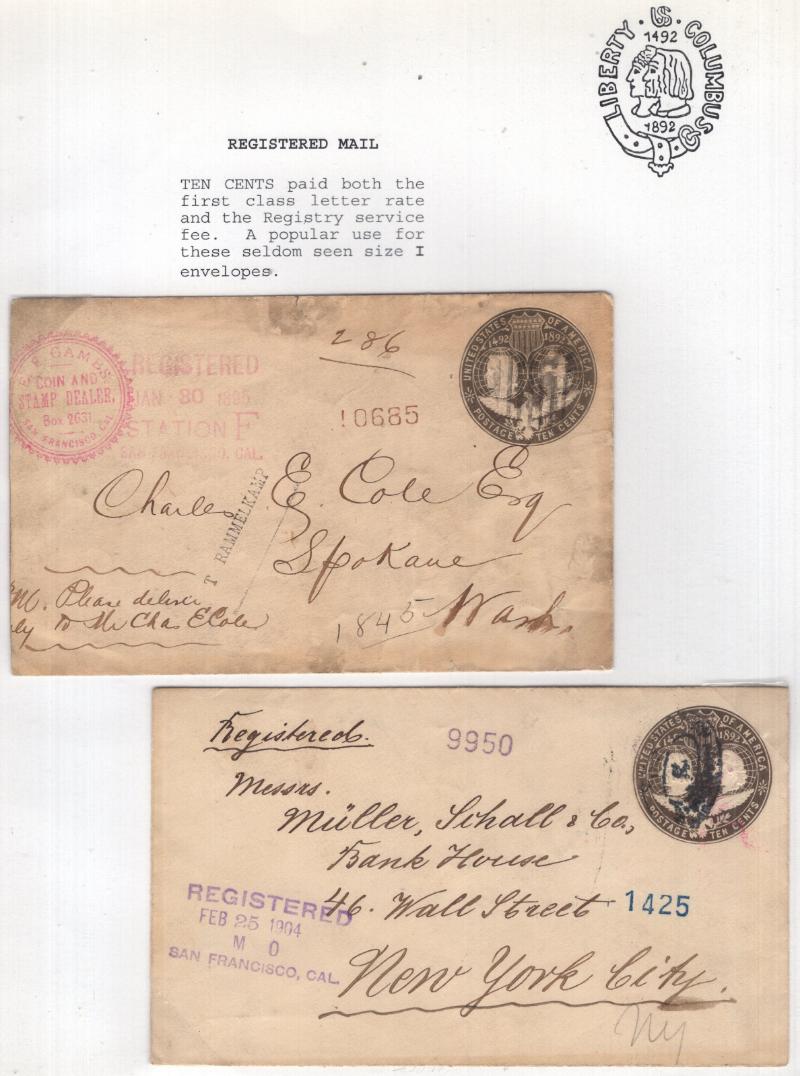 LIBERTY · US · COLUMBUS
1492
1892
REGISTERED MAIL
TEN CENTS paid both the
first class letter rate
and the Registry service
fee. A popular use for
these seldom seen size I
envelopes.
286
UNITED STATES OF AMERICA
1492 1892
POSTAGE TEN CENTS
GAMBS
COIN AND
STAMP DEALER,
Box 2631
SAN FRANCISCO, CAL.
REGISTERED
JAN 30 1895
STATION F
SAN FRANCISCO, CAL.
10685
Charles E. Cole Esq
T RAMMELKAMP
Spokane
Wash.
1845
Please deliver
to Mr Chas E Cole
Registered.
9950
UNITED STATES OF AMERICA
1492 1892
POSTAGE TEN CENTS
Messrs.
Müller, Schall & Co.,
Bank House
46. Wall Street
1425
New York City.
REGISTERED
FEB 25 1904
M O
SAN FRANCISCO, CAL.
NY